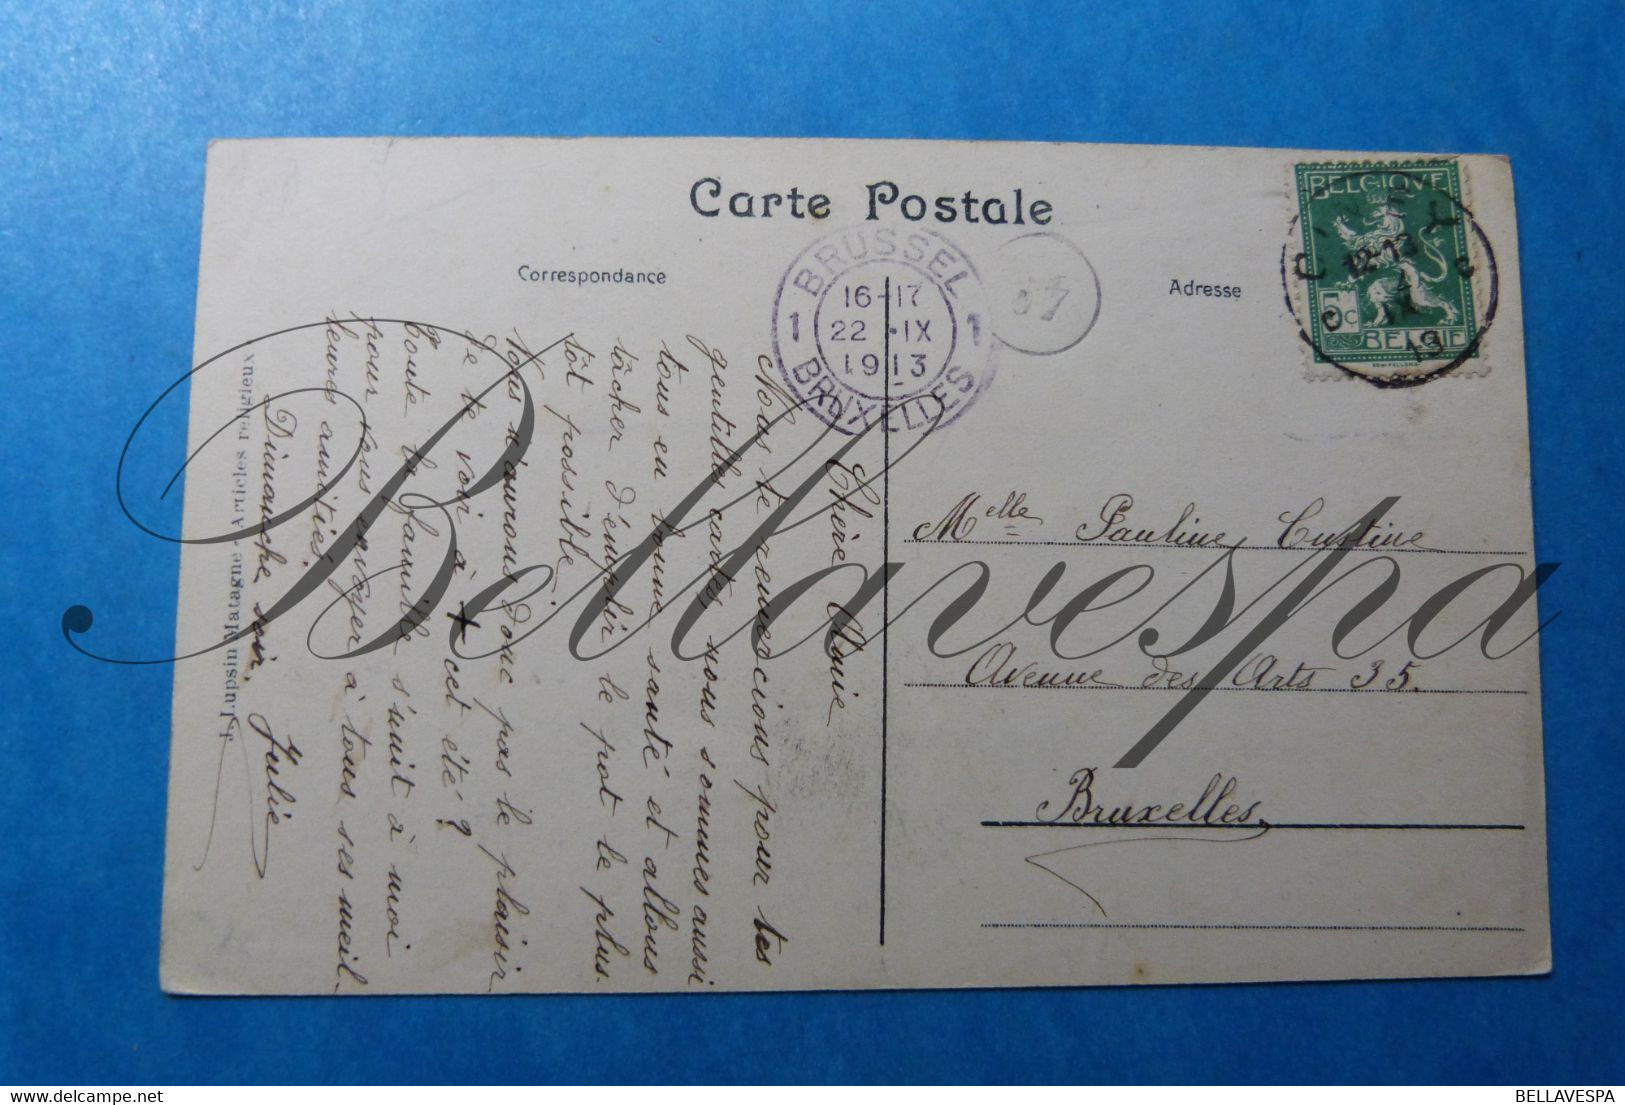 Carte Postale
Correspondance
Adresse
BRUSSEL
16-17
22 .IX
1913
1 1
BRUXELLES
37
BELGIQUE
5c
BELGIE
12-13
IX
13
Chère Amie
Nous te remercions pour tes
gentilles cartes, nous sommes aussi
tous en bonne santé et allons
tâcher d'emplir le pot le plus
tôt possible.
Nous n'aurons donc pas le plaisir
de te voir à + cet été ?
Toute la famille s'unit à moi
pour vous envoyer à tous ses meil-
leures amitiés.
Dimanche soir.
Julie
J. Lupsin Matagne Articles religieux
Melle Pauline Custine
Avenue des Arts 35.
Bruxelles.
Bellavespa
BELLAVESPA